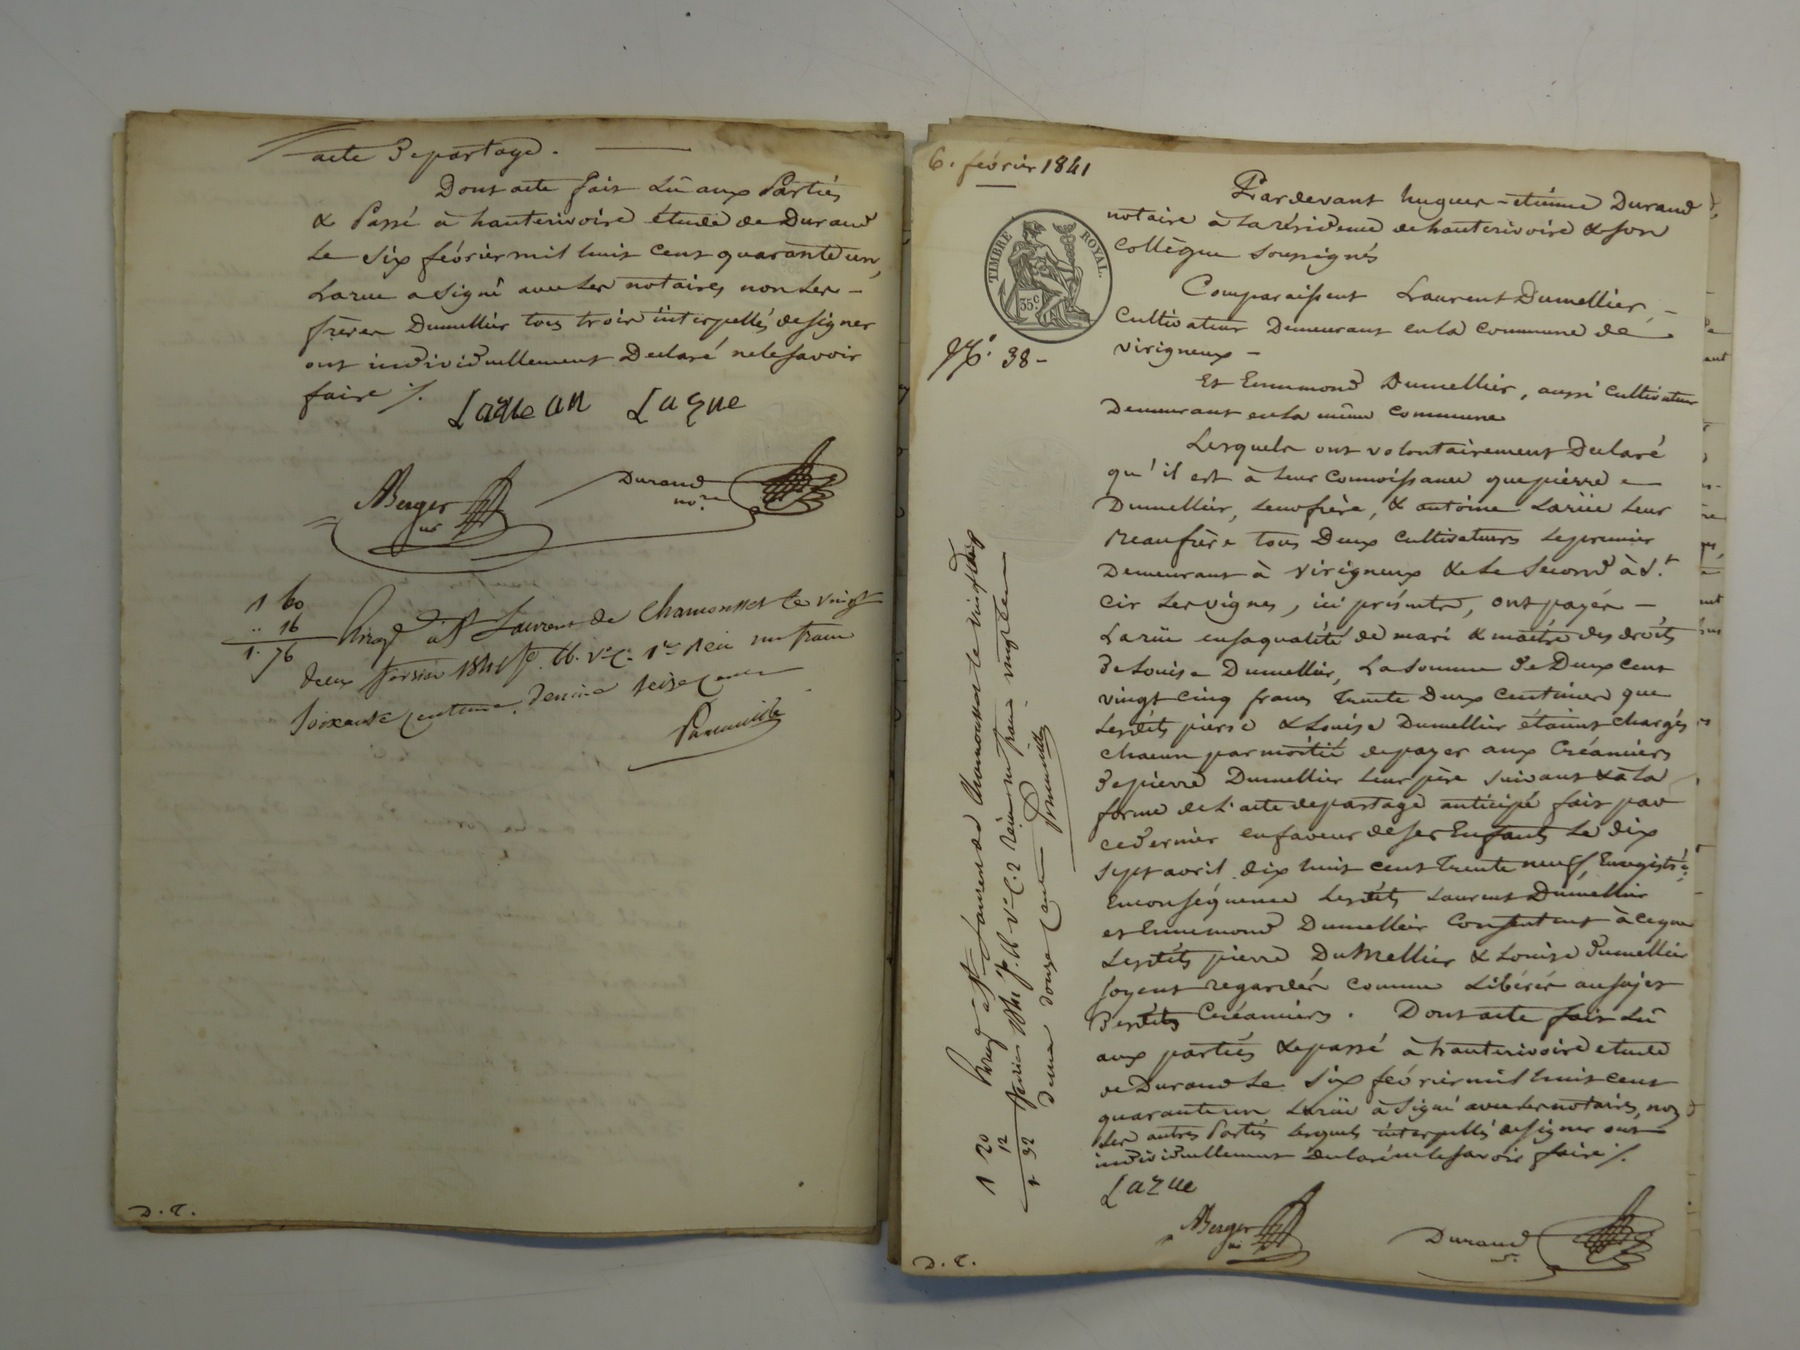 acte departage.
Dont acte fait Lû aux Parties
& Passé à hauterivoire étude de Durand
Le Six février mil huit cent quarante un,
Larue a signé avec les notaires non les
frères Dumellier tous trois interpellés de signer
ont individuellement Declaré ne le savoir
faire /.
Larue
ABerger
Durand
nore
1 60
16
1. 76
à St Laurent de Chamousset le vingt
deux février 1841 fo. 66. Vo C. 1re Reçu un franc
soixante centimes, dixième seize centimes
D. L.
6. février 1841
TIMBRE ROYAL.
35c
No. 38-
Pardevant hugues-étienne Durand
notaire à la résidence de hauterivoire & son
Collègue soussignés
Comparaissent Laurent Dumellier,
Cultivateur Demeurant en la commune de
virigneux
Et Ennemond Dumellier, aussi cultivateur
Demeurant en la même commune
Lesquels ont volontairement Declaré
qu'il est à leur connoissance que pierre
Dumellier, leur frère, & antoine Larüe leur
Beaufrère tous Deux cultivateurs le premier
Demeurant à virigneux & le Second à St
Cir les vignes, ici présents, ont payés
Larüe en sa qualité de mari & maitre des droits
de Louise Dumellier, La somme de Deux cent
vingt cinq francs trente Deux centimes que
lesdits pierre & Louise Dumellier étaient chargés
chacun par moitié de payer aux Créanciers
de pierre Dumellier leur père suivant & à la
forme de l'acte de partage anticipé fait par
ce dernier en faveur de ses Enfants Le dix
sept avril dix huit cent trente neuf, Enregistré;
En conséquence lesdits Laurent Dumellier
et Ennemond Dumellier Consentent à ce que
Lesdits pierre DuMellier & Louise Dumellier
soyent regardés comme Libérés au sujet
desdits Créanciers. Dont acte fait Lû
aux parties & passé à hauterivoire etude
de Durand Le Six février mil huit cent
quarante un Larüe à signé avec les notaires, non
les autres Parties lesquels interpellés de signer ont
individuellement declaré ne le savoir faire /.
Larue
ABerger
Durand
1 20
12
1 32
à St Laurent de Chamousset le vingt deux
février 1841 fo. 66 Vo C. 2 Reçu un franc vingt cent
dixme douze cent
D. L.